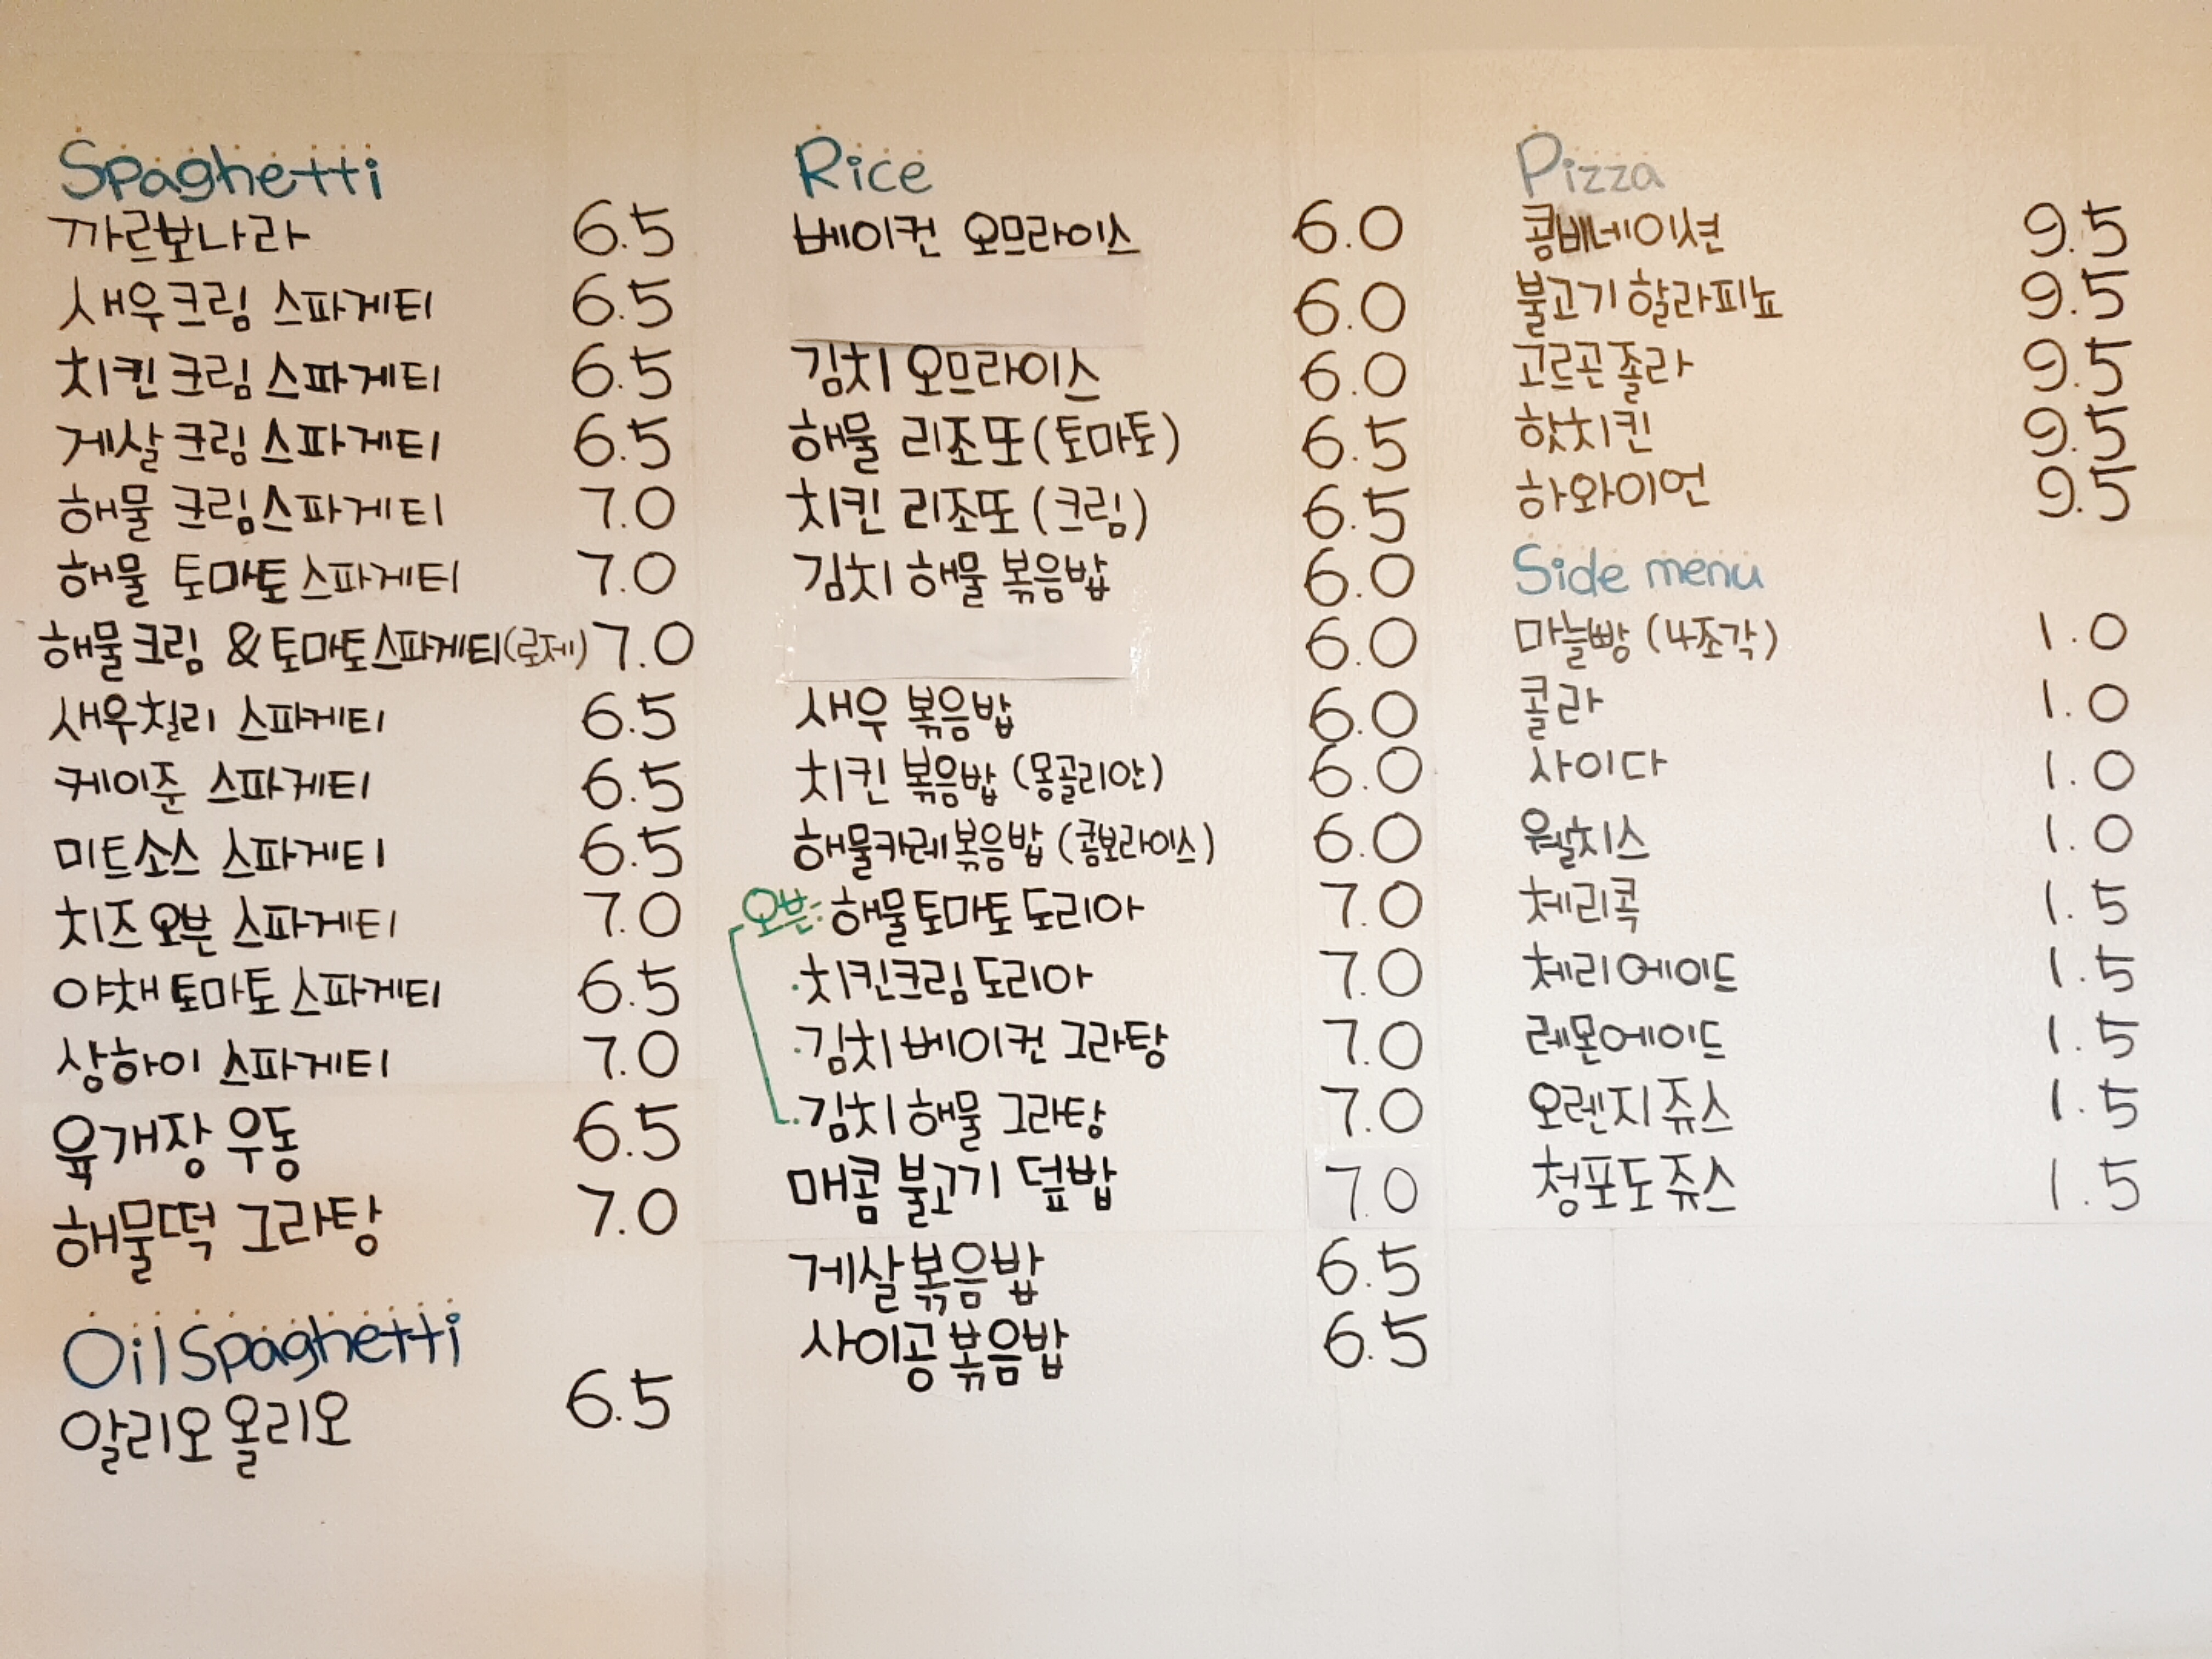 Spaghetti
까르보나라 6.5
새우크림 스파게티 6.5
치킨크림 스파게티 6.5
게살크림스파게티 6.5
해물 크림스파게티 7.0
해물 토마토스파게티 7.0
해물크림 &토마토스파게티(로제) 7.0
새우칠리 스파게티 6.5
케이준 스파게티 6.5
미트소스 스파게티 6.5
치즈오븐 스파게티 7.0
야채토마토스파게티 6.5
상하이 스파게티 7.0
육개장 우동 6.5
해물떡 그라탕 7.0
Oil Spaghetti
알리오올리오 6.5
Rice
베이컨 오므라이스 6.0
6.0
김치 오므라이스 6.0
해물 리조또(토마토) 6.5
치킨 리조또(크림) 6.5
김치 해물 볶음밥 6.0
6.0
새우 볶음밥 6.0
치킨 볶음밥 (몽골리안) 6.0
해물카레볶음밥 (콤보라이스) 6.0
오븐: 해물토마토 도리아 7.0
·치킨크림 도리아 7.0
·김치베이컨 그라탕 7.0
·김치해물 그라탕 7.0
매콤 불고기 덮밥 7.0
게살볶음밥 6.5
사이공볶음밥 6.5
Pizza
콤비네이션 9.5
불고기할라피뇨 9.5
고르곤졸라 9.5
핫치킨 9.5
하와이언 9.5
Side menu
마늘빵 (4조각) 1.0
콜라 1.0
사이다 1.0
웰치스 1.0
체리콕 1.5
체리에이드 1.5
레몬에이드 1.5
오렌지쥬스 1.5
청포도쥬스 1.5